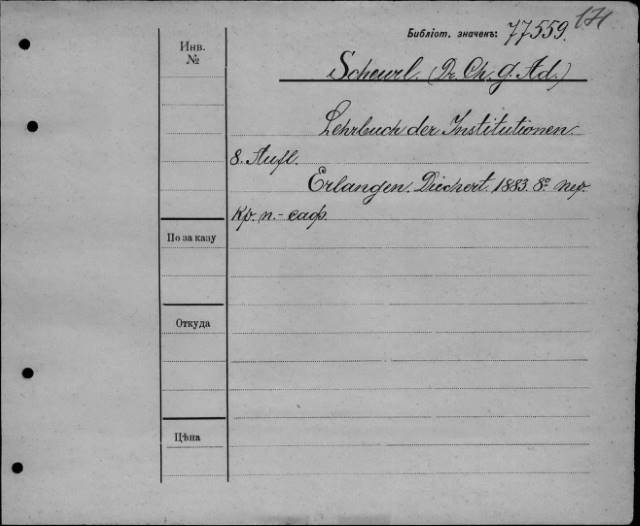 171
Библіот. значекъ: 77559.
Инв.
№
Scheurl. (Dr. Ch. G. Ad.)
Lehrbuch der Institutionen.
8. Aufl.
Erlangen. Deichert. 1883. 8º пер.
Кр. п.-саф.
По заказу
Откуда
Цѣна